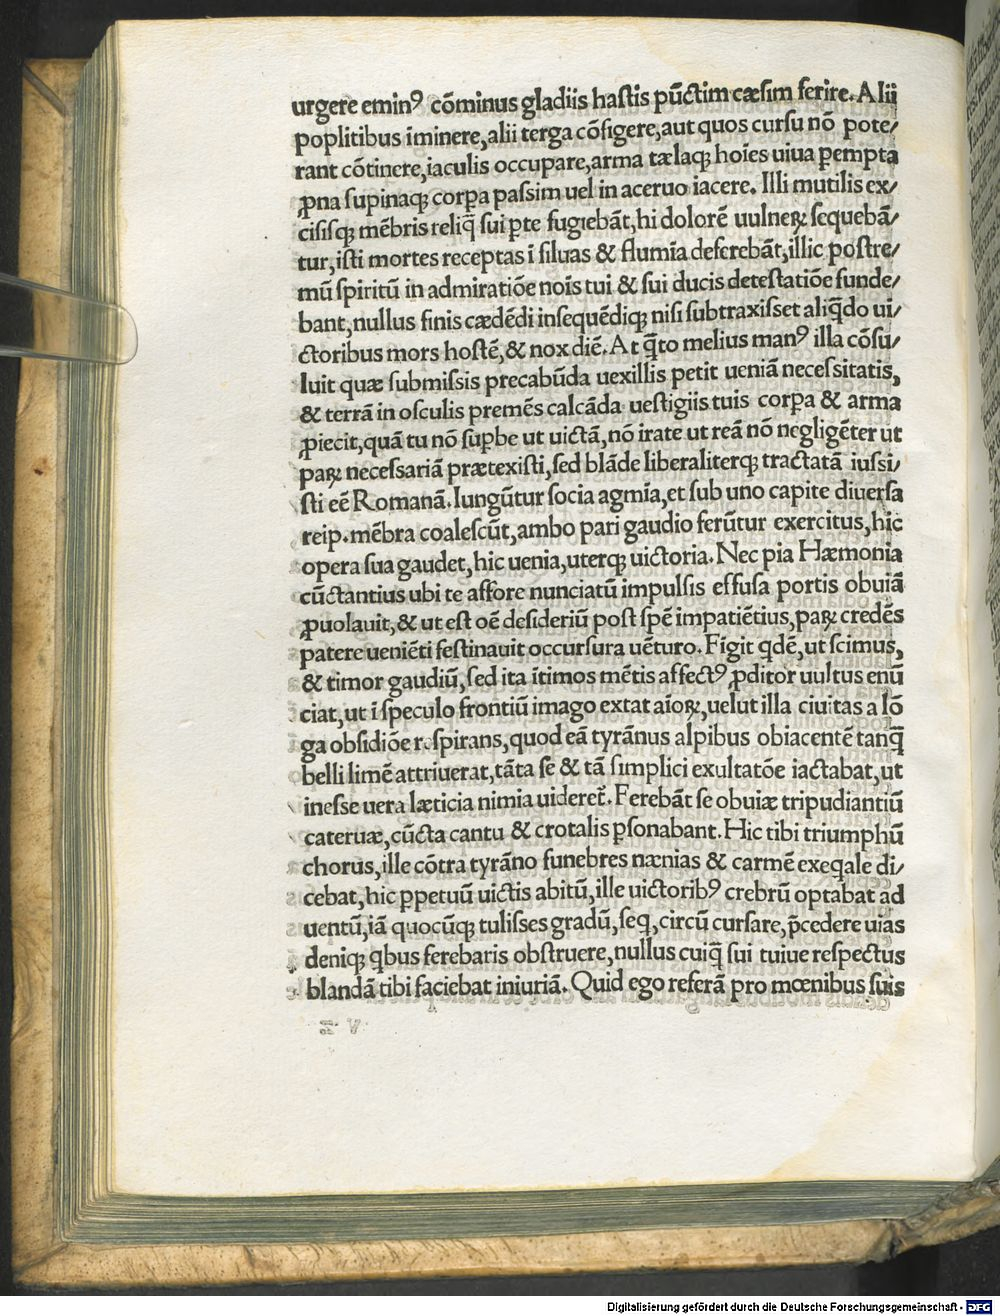 urgere emin⁹ cōminus gladiis haſtis pūctim cæſim ferire. Alii
poplitibus īminere, alii terga cōfigere, aut quos curſu nō pote/
rant cōtinere, iaculis occupare, arma tælaqꝫ hoīes uiua ꝑempta
ꝓna ſupinaqꝫ corꝑa paſsim uel in aceruo iacere. Illi mutilis ex/
ciſiſqꝫ mēbris reliq̄ ſui ꝑte fugiebāt, hi dolorē uulneꝝ ſequebā/
tur, iſti mortes receptas ī ſiluas & flumīa deferebāt, illic poſtre/
mū ſpiritū in admiratiōe noīs tui & ſui ducis deteſtatiōe funde/
bant, nullus finis cædēdi inſequēdiqꝫ niſi ſubtraxiſſet aliq̄do ui/
ctoribus mors hoſtē, & nox diē. At q̄to melius man⁹ illa cōſu/
luit quæ ſubmiſsis precabūda uexillis petit ueniā neceſsitatis,
& terrā in oſculis premēs calcāda ueſtigiis tuis corꝑa & arma
ꝓiecit, quā tu nō ſuꝑbe ut uictā, nō irate ut reā nō negligēter ut
paꝝ neceſſariā prætexiſti, ſed blāde liberaliterqꝫ tractatā iuſsi/
ſti eē Romanā. Iungūtur ſocia agmīa, et ſub uno capite diuerſa
reip. mēbra coaleſcūt, ambo pari gaudio ferūtur exercitus, hic
opera ſua gaudet, hic uenia, uterqꝫ uictoria. Nec pia Hæmonia
cūctantius ubi te affore nunciatū impulſis effuſa portis obuiā
ꝓuolauit, & ut eſt oē deſideriū poſt ſpē impatiētius, paꝝ credēs
patere ueniēti feſtinauit occurſura uēturo. Figit qdē, ut ſcimus,
& timor gaudiū, ſed ita ītimos mētis affect⁹ ꝓditor uultus enū
ciat, ut ī ſpeculo frontiū imago extat aīoꝝ, uelut illa ciuitas a lō
ga obſidiōe reſpirans, quod eā tyrānus alpibus obiacentē tanq̄
belli limē attriuerat, tāta ſe & tā ſimplici exultatōe iactabat, ut
ineſſe uera læticia nimia uideret̄. Ferebāt ſe obuiæ tripudiantiū
cateruæ, cūcta cantu & crotalis ꝑſonabant. Hic tibi triumphū
chorus, ille cōtra tyrāno funebres nænias & carmē exeqale di/
cebat, hic ꝑpetuū uictis abitū, ille uictorib⁹ crebrū optabat ad
uentū, iā quocūqꝫ tuliſſes gradū, ſeq, circū curſare, p̄cedere uias
deniqꝫ qbus ferebaris obſtruere, nullus cuiq̄ ſui tuiue reſpectus
blandā tibi faciebat iniuriā. Quid ego referā pro mœnibus ſuis
Digitalisierung gefördert durch die Deutsche Forschungsgemeinschaft - DFG